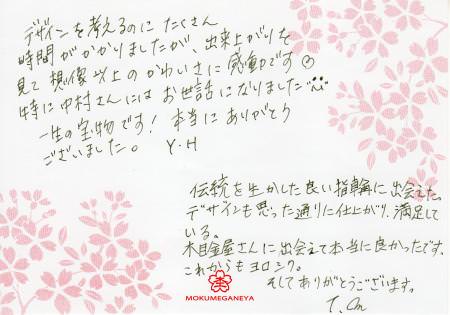 デザインを考えるのに たくさん
時間がかかりましたが、出来上がりを
見て 想像以上の かわいさに 感動です
特に 中村さんには お世話に なりました
一生の 宝物です！ 本当に ありがとう
ございました。 Y・H
伝統を生かした良い指輪に出会えた。
デザインも思った通りに仕上がり、満足して
いる。
木目金屋さんに出会えて本当に良かったです。
これからもヨロシク。
そしてありがとうございます。
MOKUMEGANEYA